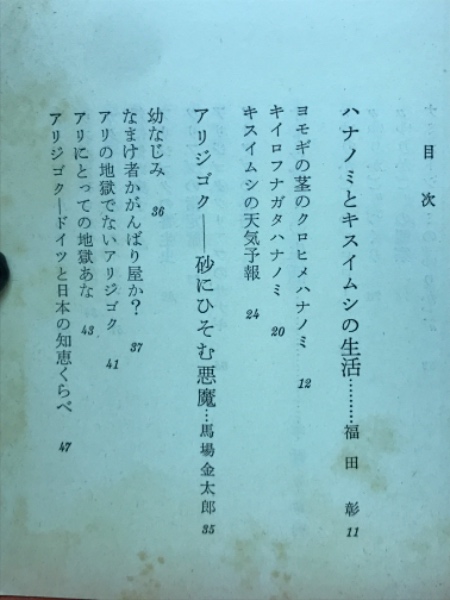 目次
ハナノミとキスイムシの生活………福田彰 11
ヨモギの茎のクロヒメハナノミ 12
キイロフナガタハナノミ 20
キスイムシの天気予報 24
アリジゴク――砂にひそむ悪魔…馬場金太郎 35
幼なじみ 36
なまけ者かがんばり屋か? 37
アリの地獄でないアリジゴク 41
アリにとっての地獄あな 43
アリジゴク―ドイツと日本の知恵くらべ 47